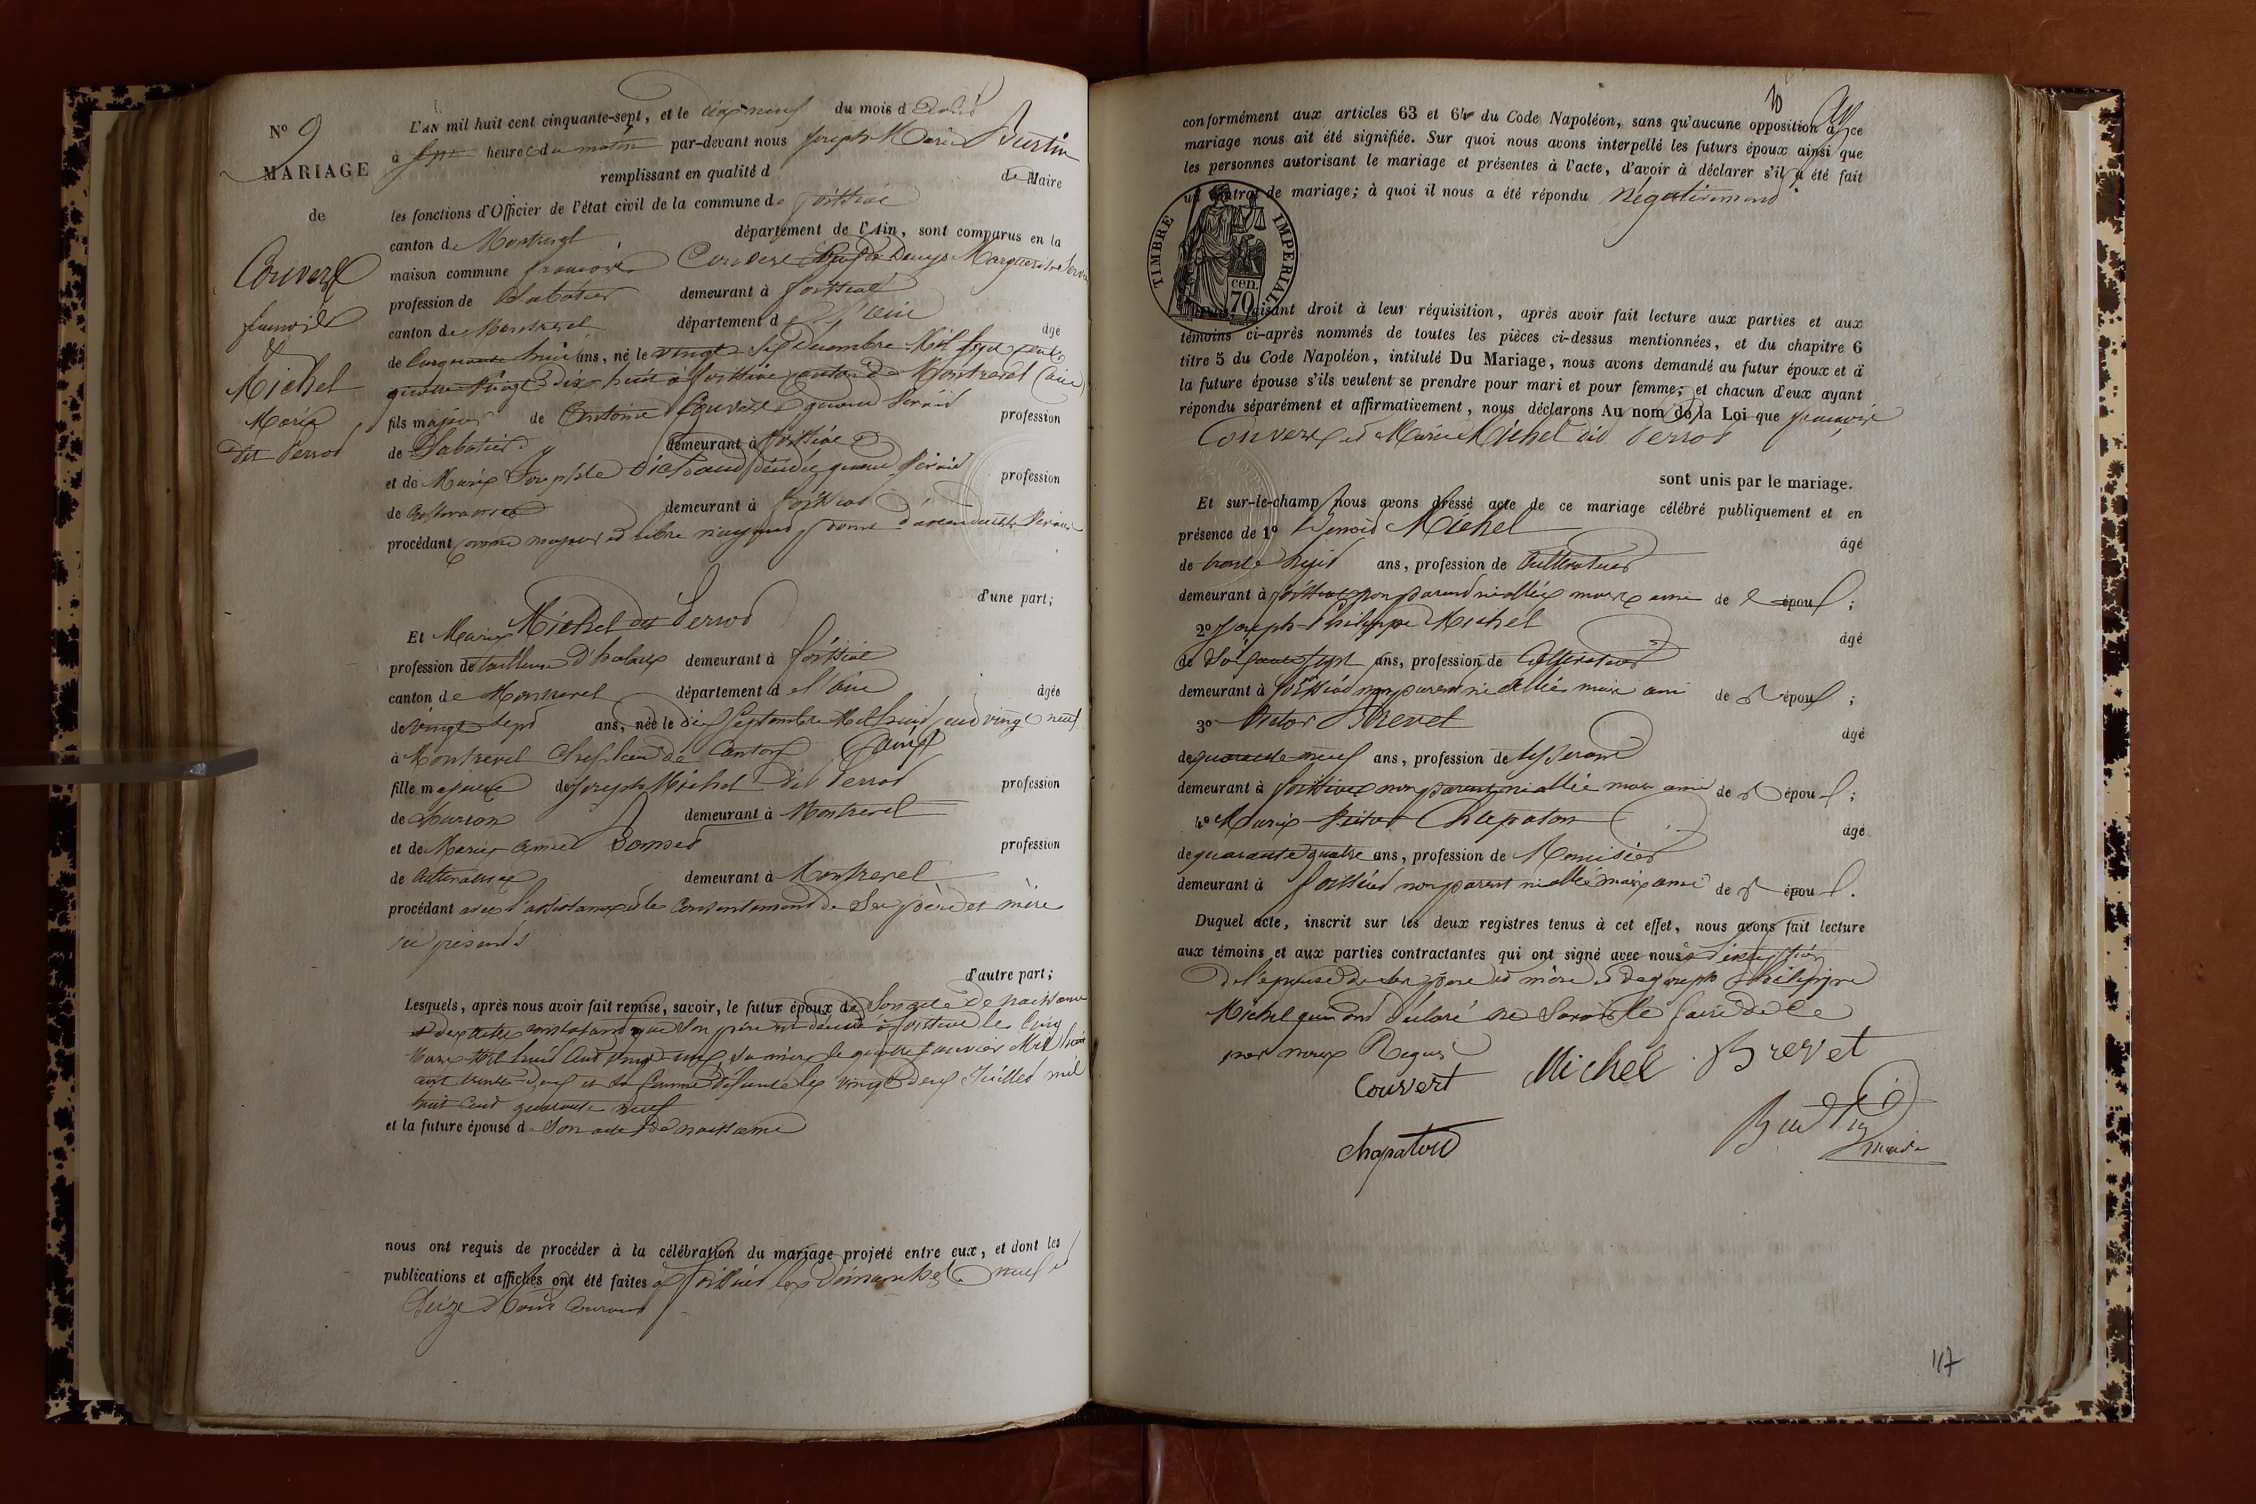 N° 9
MARIAGE
de
Couvert
françois
&
Michel
Marie
dit Perrod
L'AN mil huit cent cinquante-sept, et le dix neuf du mois d
à heure du matin par-devant nous Joseph Marie Burtin
remplissant en qualité d de Maire
les fonctions d'Officier de l'état civil de la commune de foissiat
canton de Montrevel département de l'Ain, sont comparus en la
maison commune françois Couvert Marguerite
profession de Sabotier demeurant à foissiat
canton de Montrevel département de l'ain âgé
de Cinquante huit ans, né le vingt six décembre Mil sept cent
quatre vingt dix huit à foissiat canton de Montrevel (ain)
fils majeur de Antoine Couvert quand vivait profession
de Sabotier demeurant à foissiat
et de Marie Josephte décédée quand vivait profession
de Cultivatrice demeurant à foissiat
procédant comme majeur et libre
d'une part;
Et Marie Michel dit Perrod
profession de tailleuse d'habits demeurant à foissiat
canton de Montrevel département de l'ain âgée
de vingt sept ans, née le dix Septembre Mil huit cent vingt neuf
à Montrevel chef lieu de Canton (ain)
fille majeure de Joseph Michel dit Perrod profession
de Maçon demeurant à Montrevel
et de Marie profession
de Cultivatrice demeurant à Montrevel
procédant avec l'assistance et le Consentement de Ses père et mère
ici présents
d'autre part;
Lesquels, après nous avoir fait remise, savoir, le futur époux de Son acte de naissance
des actes constatant que Son père est décédé à foissiat le Cinq
Mars Mil huit Cent vingt neuf Sa mère le quatre Janvier Mil huit
cent trente deux et Sa femme défunte le vingt deux Juillet mil
huit Cent quarante neuf
et la future épouse d Son acte de naissance
nous ont requis de procéder à la célébration du mariage projeté entre eux, et dont les
publications et affiches ont été faites à foissiat les dimanches neuf et
Seize Mois Courant
conformément aux articles 63 et 64 du Code Napoléon, sans qu'aucune opposition à ce
mariage nous ait été signifiée. Sur quoi nous avons interpellé les futurs époux ainsi que
les personnes autorisant le mariage et présentes à l'acte, d'avoir à déclarer s'il a été fait
un contrat de mariage; à quoi il nous a été répondu Négativement
TIMBRE IMPERIAL
70 cen.
faisant droit à leur réquisition, après avoir fait lecture aux parties et aux
témoins ci-après nommés de toutes les pièces ci-dessus mentionnées, et du chapitre 6
titre 5 du Code Napoléon, intitulé Du Mariage, nous avons demandé au futur époux et à
la future épouse s'ils veulent se prendre pour mari et pour femme; et chacun d'eux ayant
répondu séparément et affirmativement, nous déclarons Au nom de la Loi que françois
Couvert et Marie Michel dit Perrod
sont unis par le mariage.
Et sur-le-champ nous avons dressé acte de ce mariage célébré publiquement et en
présence de 1° Benoit Michel âgé
de trente huit ans, profession de Cultivateur
demeurant à foissiat non parent ni allié mais ami de l époux;
2° Joseph-Philippe Michel âgé
de Soixante sept ans, profession de Cultivateur
demeurant à foissiat non parent ni allié mais ami de l'époux;
3° Victor Brevet âgé
de quarante neuf ans, profession de tisserand
demeurant à foissiat non parent ni allié mais ami de l'époux;
4° Marie Victor Chapaton âgé
de quarante quatre ans, profession de Menuisier
demeurant à foissiat non parent ni allié mais ami de l'époux.
Duquel acte, inscrit sur les deux registres tenus à cet effet, nous avons fait lecture
aux témoins et aux parties contractantes qui ont signé avec nous à l'exception
de l'épouse de Ses père et mère et de Joseph Philippe
Michel qui ont déclaré ne Savoir le faire de ce
par nous Requis
Couvert Michel Brevet
Chapaton Burtin
maire
117